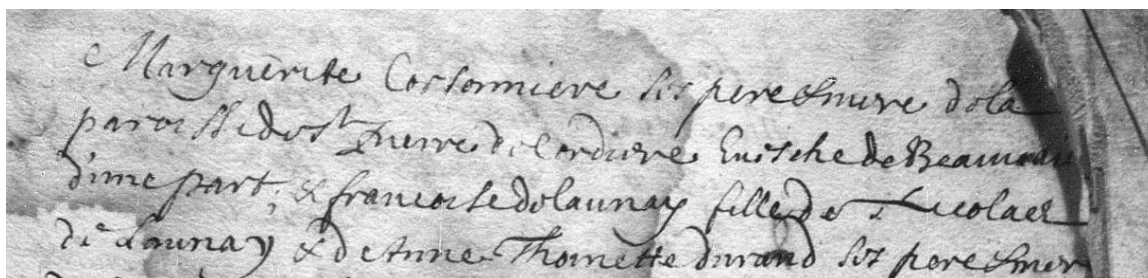 Marguerite Corsonniere ses pere & mere de la
paroisse de st pierre de Cordiere Evesche de Beauvais
d'une part, & francoise de launay fille de Nicolas
de Launay & de Anne Thomette durand ses pere & mere